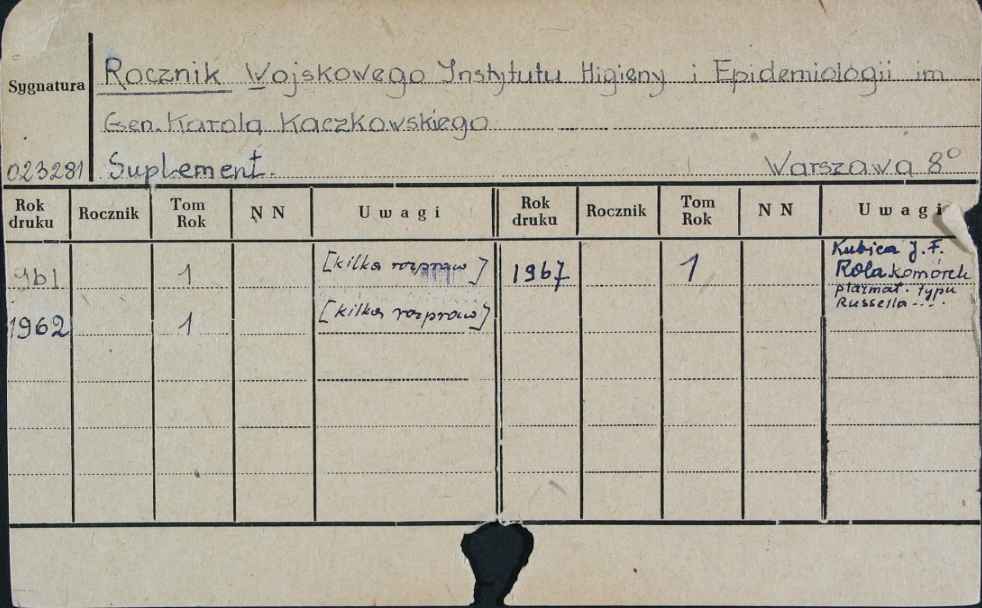 Sygnatura
Rocznik Wojskowego Instytutu Higieny i Epidemiologii im
Gen. Karola Kaczkowskiego
023281 Suplement. Warszawa 8°
Rok druku Rocznik Tom Rok N N Uwagi Rok druku Rocznik Tom Rok N N Uwagi
961 1 [kilka rozpraw] 1967 1 Kubica J. F.
Rola komórek
plazmat. typu
Russella...
1962 1 [kilka rozpraw]